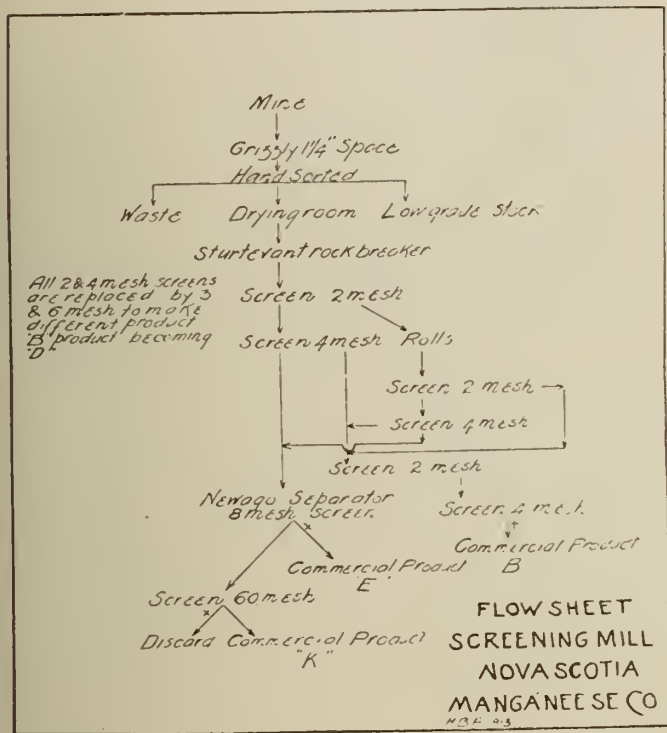 Mine
Grizzly 1¼" Space
Hand Sorted
Waste Dryingroom Lowgrade Stock
Sturtevant rock breaker
All 2 & 4 mesh screens
are replaced by 3
& 6 mesh to make
different product
"B" product becoming
"D"
Screen 2 mesh
Screen 4 mesh Rolls
Screen 2 mesh
Screen 4 mesh
Screen 2 mesh
Newago Separator
8 mesh screen
Screen 4 mesh
Commercial Product
B
Commercial Product
"E"
Screen 60 mesh
Discard Commercial Product
"K"
FLOW SHEET
SCREENING MILL
NOVA SCOTIA
MANGANEESE CO